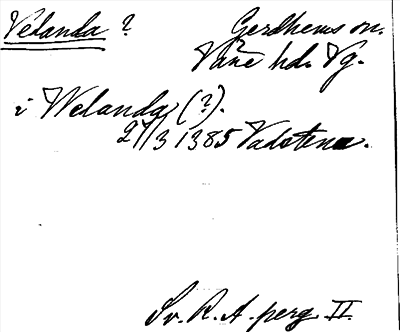 Velanda ? Gerdhems sn.
Väne hd. Vg.
i Welanda (?).
27/3 1385 Vadstena.
Sv. R. A. perg. II